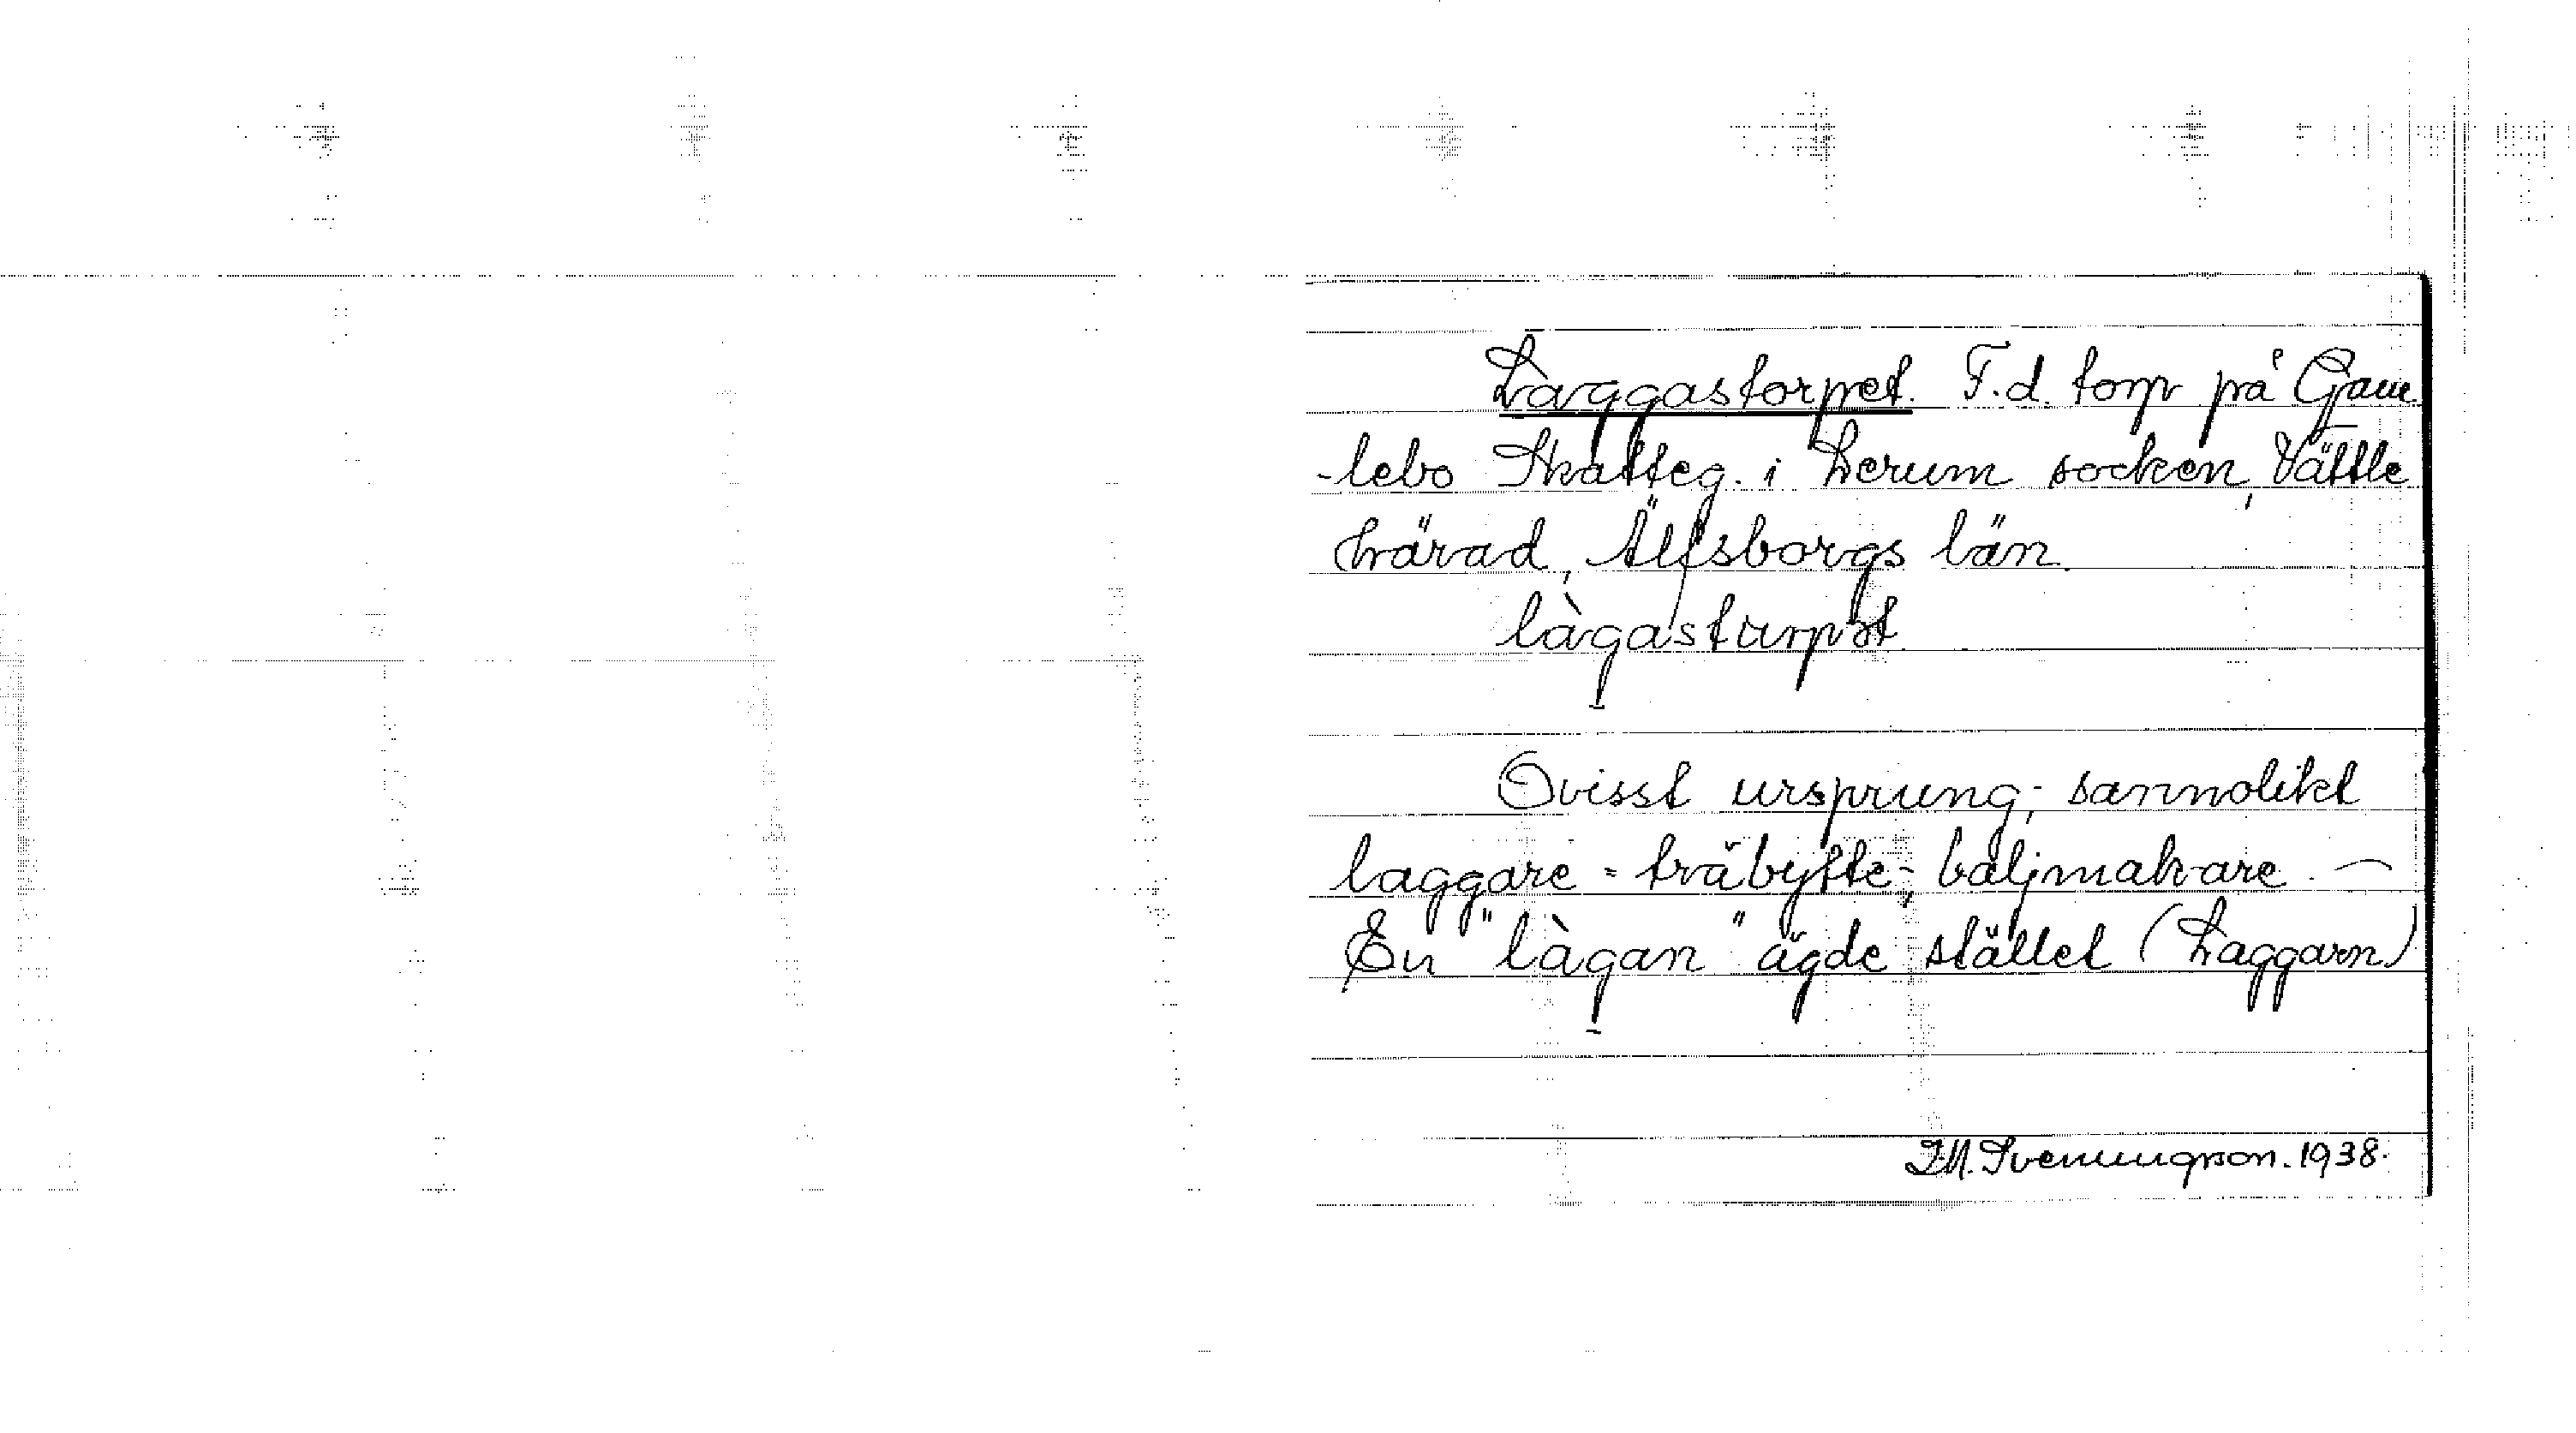 Laggastorpet. F.d. torp på Gam
-lebo Skatteg. i Lerum socken, Vättle
härad, Älfsborgs län.
làgasturpət
Ovisst ursprung; sannolikt
laggare = träbytte-, baljmakare. —
En "làgan" ägde stället (Laggarn)
J.M. Svenungson. 1938.